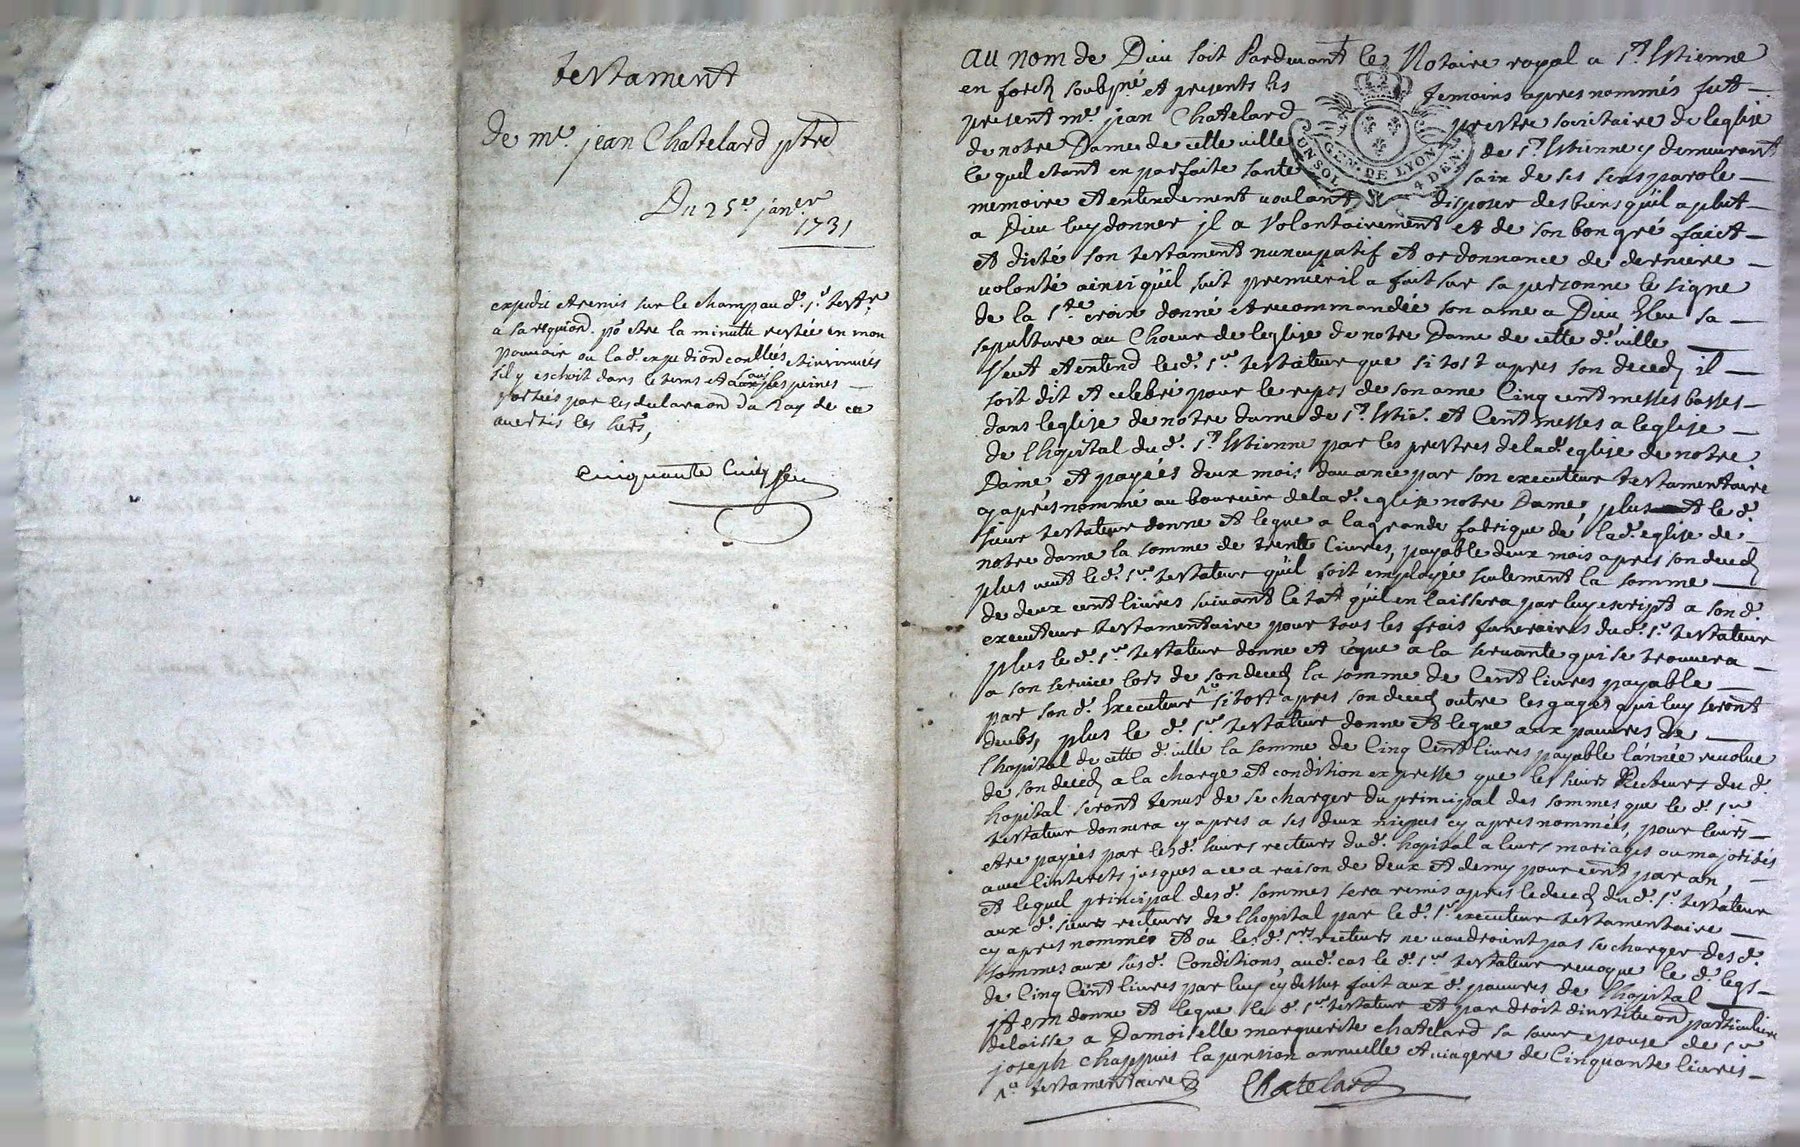 testament
de m.e jean Chatelard ptre
Du 25.e jan.er
1731
expedié et remis sur le champ au d. s.r test.r
a sa req.on po.r etre la minutte restée en mon
pouvoir ou la d. expedi.on et insinués
s'il y eschoit dans le tems et sous les peines
portées par les declara.on du Roy de ce
avertis les
cinquante cinq
au nom de Dieu soit Pardevant le Notaire royal a s.t Estienne
en forest soubs.né et presents les temoins apres nommés fut
present m.e jean Chatelard prestre societaire de leglise
de notre Dame de cette ville de s.t Estienne y demeurant
lequel etant en parfaite santé sain de ses sens parole
UN SOL GEN. DE LYON 4 DEN.
memoire et entendement voulant disposer des biens qu'il a plut
a Dieu luy donner il a volontairement et de son bon gré faict
et dicté son testament nuncupatif et ordonnance de derniere
volonté ainsi qu'il suit premier il a fait sur sa personne le signe
de la s.te croix donné et recommandée son ame a Dieu Eleu sa
sepulture au Choeur de leglise de notre Dame de cette d. ville
Veut et entend le d. s.r testateur que si tost apres son deced il
soit dit et celebré pour le repos de son ame Cinq cent messes basses
dans leglise de notre dame de s.t Estie. et Cent messes a leglise
de lhopital du d. s.t Estienne par les prestres de la d. eglise de notre
Dame et payées deux mois davance par son executeur testamentaire
cy apres nommé au boursier de la d. eglise notre Dame, plus et le d.
sieur testateur donne et legue a la grande fabrique de la d. eglise de
notre dame la somme de trente livres, payable deux mois apres son deced
plus veut le d. s.r testateur qu'il soit employée seulement la somme
de deux cent livres suivant letat qu'il en laissera par luy escript a son d.
executeur testamentaire pour tous les frais funeraires du d. s.r testateur
plus le d. s.r testateur donne et legue a la servante qui se trouvera
a son service lors de son deced la somme de Cent livres payable
par son d. Executeur si tost apres son deced outre les gages qui luy seront
deubs, plus le d. s.r testateur donne et legue aux pauvres de
lhopital de cette d. ville la somme de Cinq Cent livres payable l'année revolue
de son deced a la charge et condition expresse que les sieurs Recteurs du d.
hopital seront tenus de se charger du principal des sommes que le d. s.r
testateur donnera cy apres a ses deux niepces cy apres nommées, pour leurs
etre payées par les d. sieurs recteurs du d. hopital a leurs mariages ou majorités
avec linterets jusques a ce a raison de deux et demy pour cent par an,
et lequel principal des d. sommes sera remis apres le deced du d. s.r testateur
aux d. sieurs recteurs de lhopital par le d. s.r executeur testamentaire
cy apres nommés et ou les d. s.rs recteurs ne voudroient pas se charger des d.
sommes aux susd. Conditions, aud. cas le d. s.r testateur revoque le d. legs
de Cinq Cent livres par luy cy dessus fait aux d. pauvres de lhopital
jtem donne et legue le d. s.r testateur et par droit dinstitu.on particuliere
delaisse a Damoiselle marguerite chatelard sa soeur epouse de s.r
joseph Chappuis la pension annuelle et viagere de Cinquante livres
testamentaire Chatelard